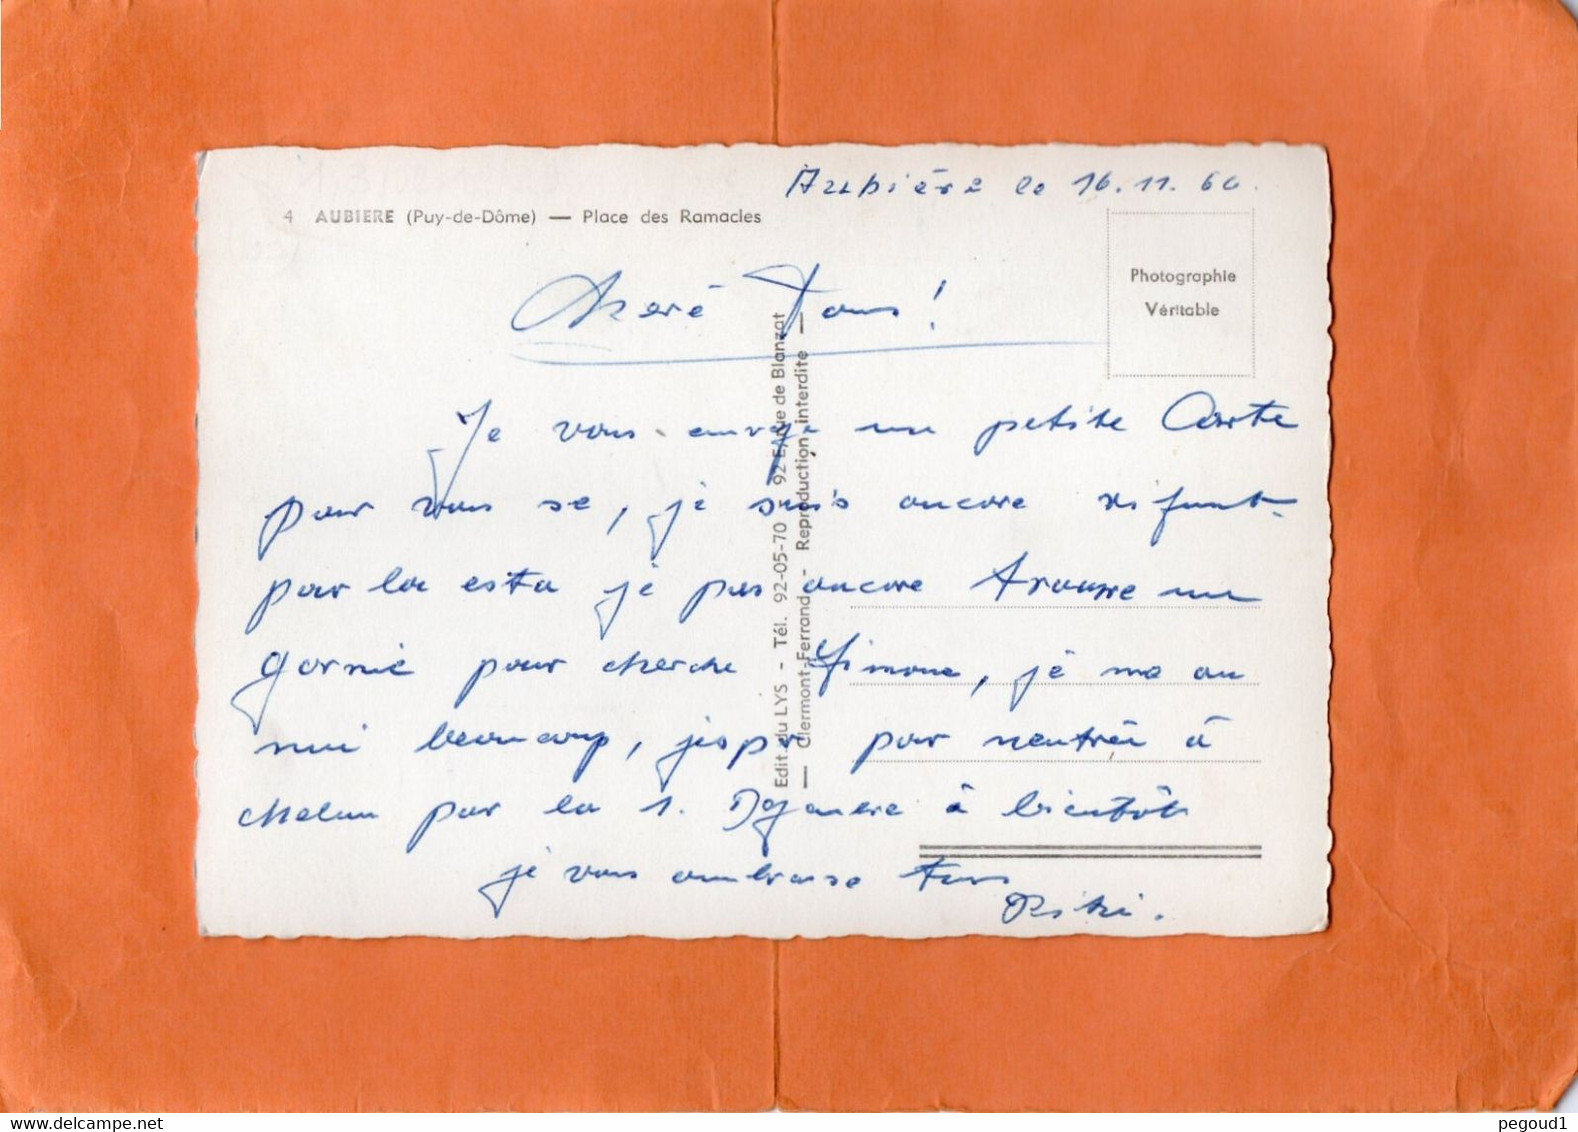 Aubière le 16.11.60.
4 AUBIERE (Puy-de-Dôme) — Place des Ramacles
Photographie
Véritable
Cheré Tous!
Je vous envoje un petite Carte
pour vous se, je suis ancore
par la esta je pas ancore trouwe un
garnie pour cherche Simone, je ma an
nui beaucoup, jespr par rentrée à
chalun par la 1. Djanere à bientôt
je vous ambrasse tus
Edit. du LYS - Tél. 92-05-70 - 92 Rue de Blanzat
— Clermont-Ferrand - Reproduction interdite —
www.delcampe.net
pegoud1